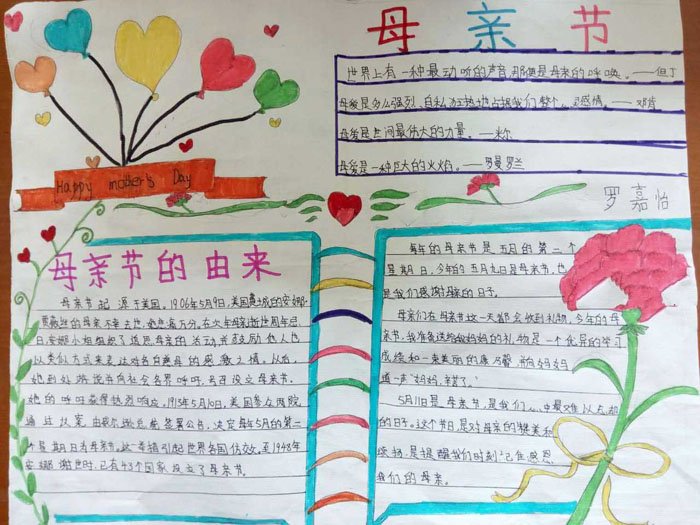 母亲节
世界上有一种最动听的声音,那便是母亲的呼唤。——但丁
母爱是多么强烈、自私、狂热地占据我们整个心灵的感情。——邓肯
母爱是世间最伟大的力量。——米尔
母爱是一种巨大的火焰。——罗曼·罗兰
Happy mother's Day
罗嘉怡
母亲节的由来
母亲节起源于美国。1906年5月9日,美国费城的安娜·
的母亲不幸去世,她悲痛万分。在次年母亲逝世周年忌
日,安娜小姐组织了追思母亲的活动,并鼓励他人也
以类似方式来表达对各自慈母的感激之情。以后,
她到处游说并向社会各界呼吁,号召设立母亲节。
她的呼吁获得热烈响应。1913年5月10日,美国参众两院
通过议案,由威尔逊总统签署公布,决定每年5月的第二
个星期日为母亲节。这一举措引起世界各国仿效,至1948年
安娜谢世时,已有43个国家设立了母亲节。
每年的母亲节是五月的第二个
星期日,今年的五月九日是母亲节,也
是我们感谢母亲的日子。
母亲们在母亲节这一天都会收到礼物,今年的母
亲节,我准备送给妈妈的礼物是一个优异的学习
成绩和一束美丽的康乃馨,并向妈妈
道一声“妈妈,辛苦了。”
5月11日是母亲节,是我们心中最难以忘却
的日子。这个节日,是对母亲的赞美和
,是提醒我们时刻记住感恩
我们的母亲。